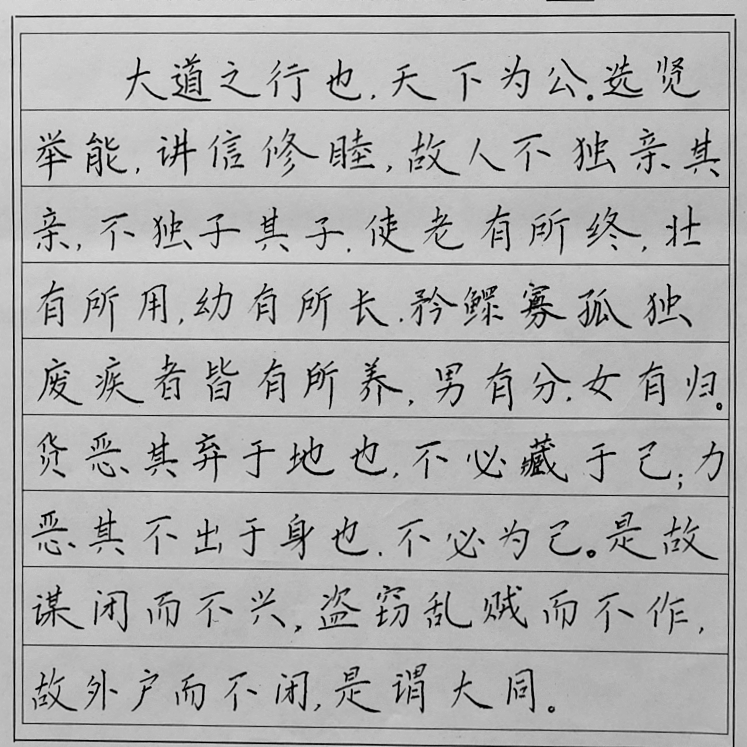 大道之行也,天下为公。选贤
举能,讲信修睦,故人不独亲其
亲,不独子其子,使老有所终,壮
有所用,幼有所长,矜鳏寡孤独
废疾者皆有所养,男有分,女有归。
货恶其弃于地也,不必藏于己;力
恶其不出于身也,不必为己。是故
谋闭而不兴,盗窃乱贼而不作,
故外户而不闭,是谓大同。